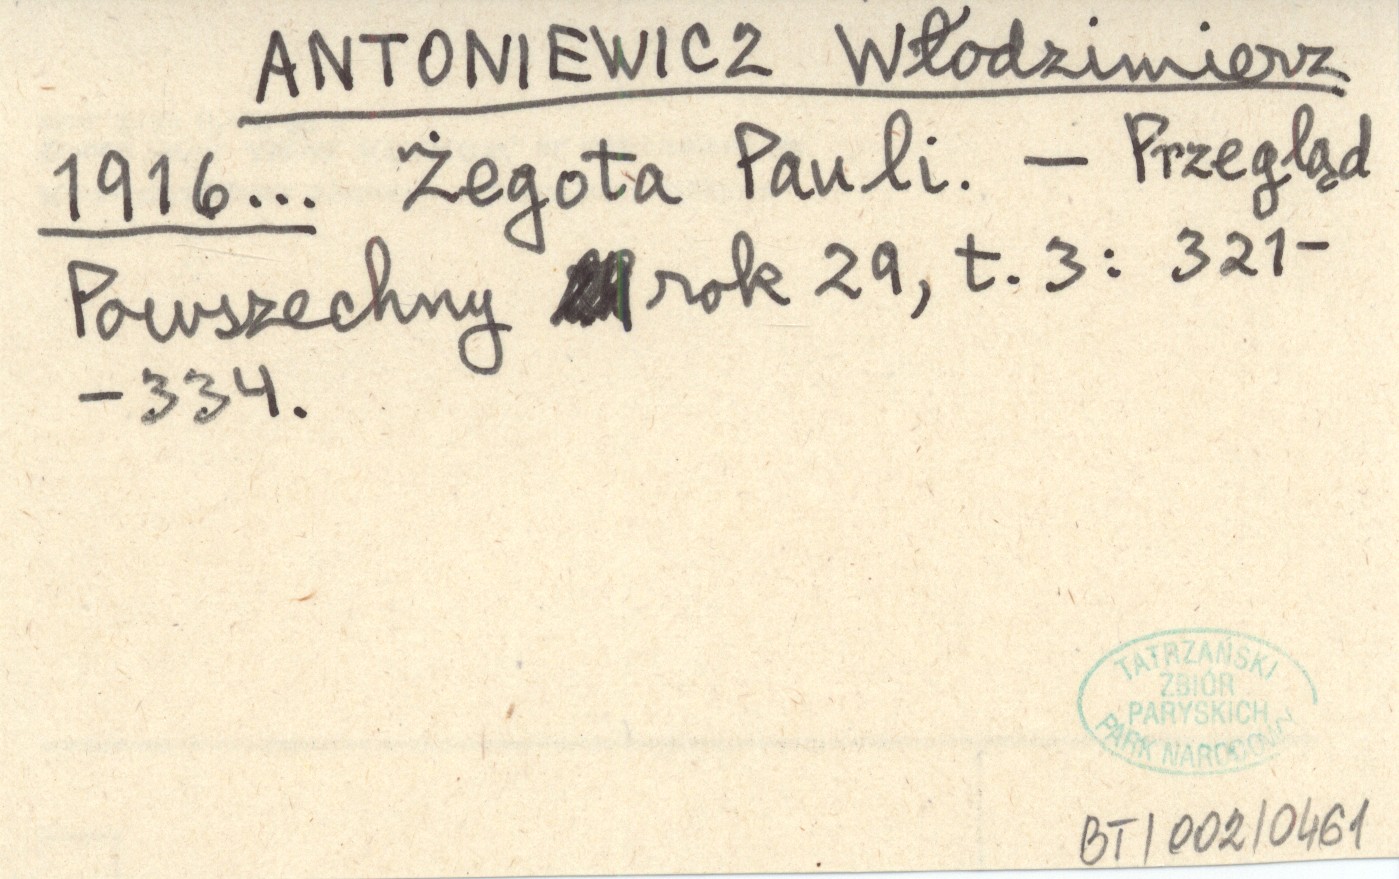 ANTONIEWICZ Włodzimierz
1916... Żegota Pauli. — Przegląd
Powszechny rok 29, t. 3: 321-
-334.
TATRZAŃSKI
ZBIÓR
PARYSKICH
PARK NARODOWY
BT/002/0461